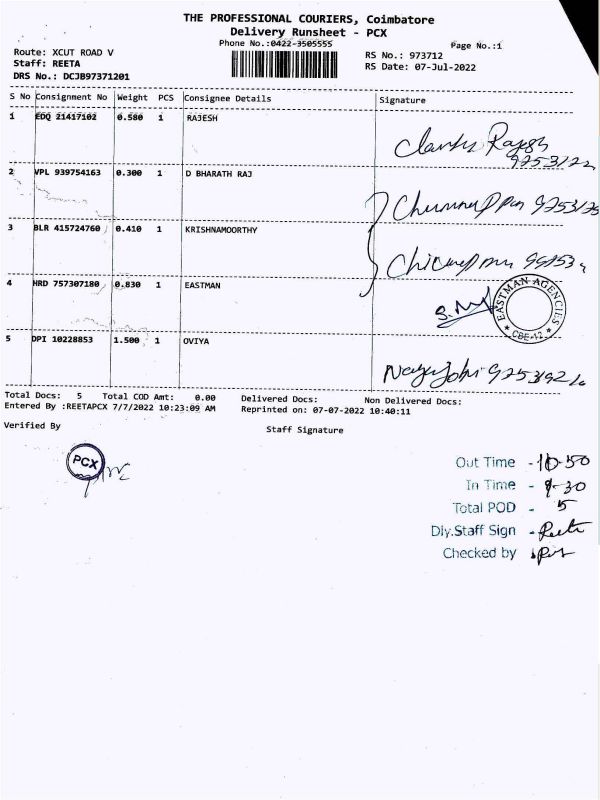 THE PROFESSIONAL COURIERS, Coimbatore
Delivery Runsheet - PCX
Phone No.:0422-3505555
Page No.:1
Route: XCUT ROAD V
Staff: REETA
DRS No.: DCJB97371201
RS No.: 973712
RS Date: 07-Jul-2022
S No Consignment No Weight PCS Consignee Details Signature
1 EDQ 21417102 0.580 1 RAJESH
2 VPL 939754163 0.300 1 D BHARATH RAJ
3 BLR 415724760 0.410 1 KRISHNAMOORTHY
4 HRD 757307180 0.830 1 EASTMAN
EASTMAN AGENCIES
* CBE-12 *
5 DPI 10228853 1.500 1 OVIYA
Total Docs: 5 Total COD Amt: 0.00 Delivered Docs: Non Delivered Docs:
Entered By :REETAPCX 7/7/2022 10:23:09 AM Reprinted on: 07-07-2022 10:40:11
Verified By Staff Signature
PCX
Out Time - 10-50
In Time - 9-30
Total POD - 5
Dly.Staff Sign - Reeta
Checked by